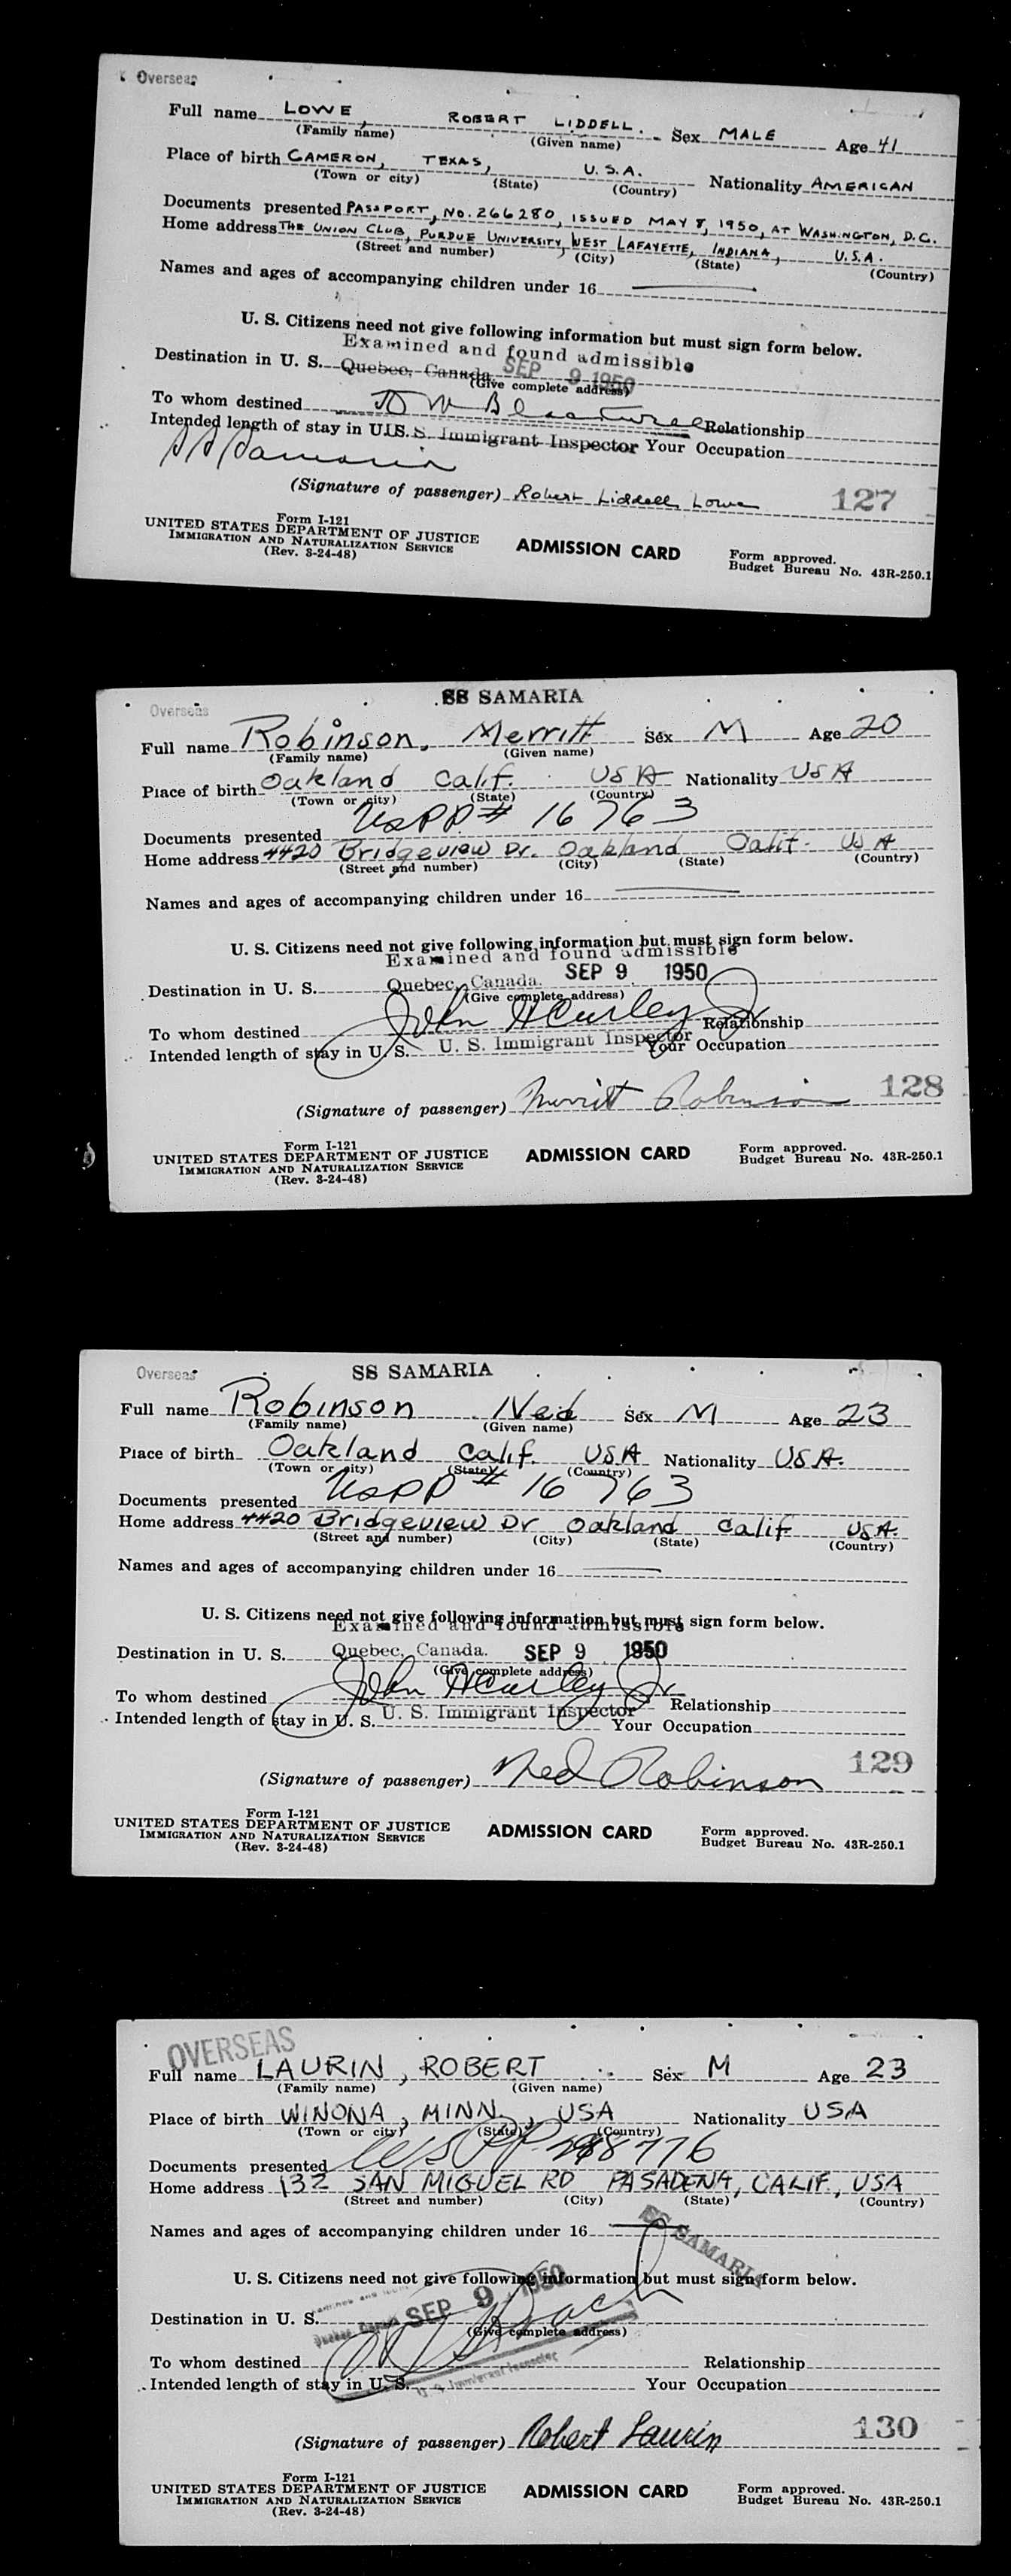 Overseas
Full name LOWE, ROBERT LIDDELL. Sex MALE Age 41
(Family name) (Given name)
Place of birth CAMERON, TEXAS, U.S.A. Nationality AMERICAN
(Town or city) (State) (Country)
Documents presented PASSPORT, NO. 266280, ISSUED MAY 8, 1950, AT WASHINGTON, D.C.
Home address THE UNION CLUB, PURDUE UNIVERSITY, WEST LAFAYETTE, INDIANA, U.S.A.
(Street and number) (City) (State) (Country)
Names and ages of accompanying children under 16
U. S. Citizens need not give following information but must sign form below.
Examined and found admissible
Destination in U. S. Quebec, Canada. SEP 9 1950
(Give complete address)
To whom destined Relationship
Intended length of stay in U. S. U. S. Immigrant Inspector Your Occupation
SS Samaria
(Signature of passenger) Robert Liddell Lowe 127
Form I-121
UNITED STATES DEPARTMENT OF JUSTICE
IMMIGRATION AND NATURALIZATION SERVICE
(Rev. 3-24-48)
ADMISSION CARD
Form approved.
Budget Bureau No. 43R-250.1
SS SAMARIA
Overseas
Full name Robinson, Merritt Sex M Age 20
(Family name) (Given name)
Place of birth Oakland Calif. USA Nationality USA
(Town or city) (State) (Country)
Documents presented USPP # 16763
Home address 4420 Bridgeview Dr. Oakland Calif. USA
(Street and number) (City) (State) (Country)
Names and ages of accompanying children under 16
U. S. Citizens need not give following information but must sign form below.
Examined and found admissible
Destination in U. S. Quebec, Canada. SEP 9 1950
(Give complete address)
To whom destined John H Curley Jr Relationship
Intended length of stay in U. S. U. S. Immigrant Inspector Your Occupation
(Signature of passenger) Merritt Robinson 128
Form I-121
UNITED STATES DEPARTMENT OF JUSTICE
IMMIGRATION AND NATURALIZATION SERVICE
(Rev. 3-24-48)
ADMISSION CARD
Form approved.
Budget Bureau No. 43R-250.1
Overseas SS SAMARIA
Full name Robinson Ned Sex M Age 23
(Family name) (Given name)
Place of birth Oakland Calif. USA Nationality USA.
(Town or city) (State) (Country)
Documents presented USPP # 16763
Home address 4420 Bridgeview Dr Oakland Calif USA.
(Street and number) (City) (State) (Country)
Names and ages of accompanying children under 16
U. S. Citizens need not give following information but must sign form below.
Examined and found admissible
Destination in U. S. Quebec, Canada. SEP 9 1950
(Give complete address)
To whom destined John H Curley Jr Relationship
Intended length of stay in U. S. U. S. Immigrant Inspector Your Occupation
(Signature of passenger) Ned Robinson 129
Form I-121
UNITED STATES DEPARTMENT OF JUSTICE
IMMIGRATION AND NATURALIZATION SERVICE
(Rev. 3-24-48)
ADMISSION CARD
Form approved.
Budget Bureau No. 43R-250.1
OVERSEAS
Full name LAURIN, ROBERT Sex M Age 23
(Family name) (Given name)
Place of birth WINONA, MINN., USA Nationality USA
(Town or city) (State) (Country)
Documents presented USPP 298776
Home address 132 SAN MIGUEL RD PASADENA, CALIF., USA
(Street and number) (City) (State) (Country)
Names and ages of accompanying children under 16
SS SAMARIA
U. S. Citizens need not give following information but must sign form below.
Destination in U. S. SEP 9 1950
(Give complete address)
To whom destined Relationship
Intended length of stay in U. S. U. S. Immigrant Inspector Your Occupation
(Signature of passenger) Robert Laurin 130
Form I-121
UNITED STATES DEPARTMENT OF JUSTICE
IMMIGRATION AND NATURALIZATION SERVICE
(Rev. 3-24-48)
ADMISSION CARD
Form approved.
Budget Bureau No. 43R-250.1